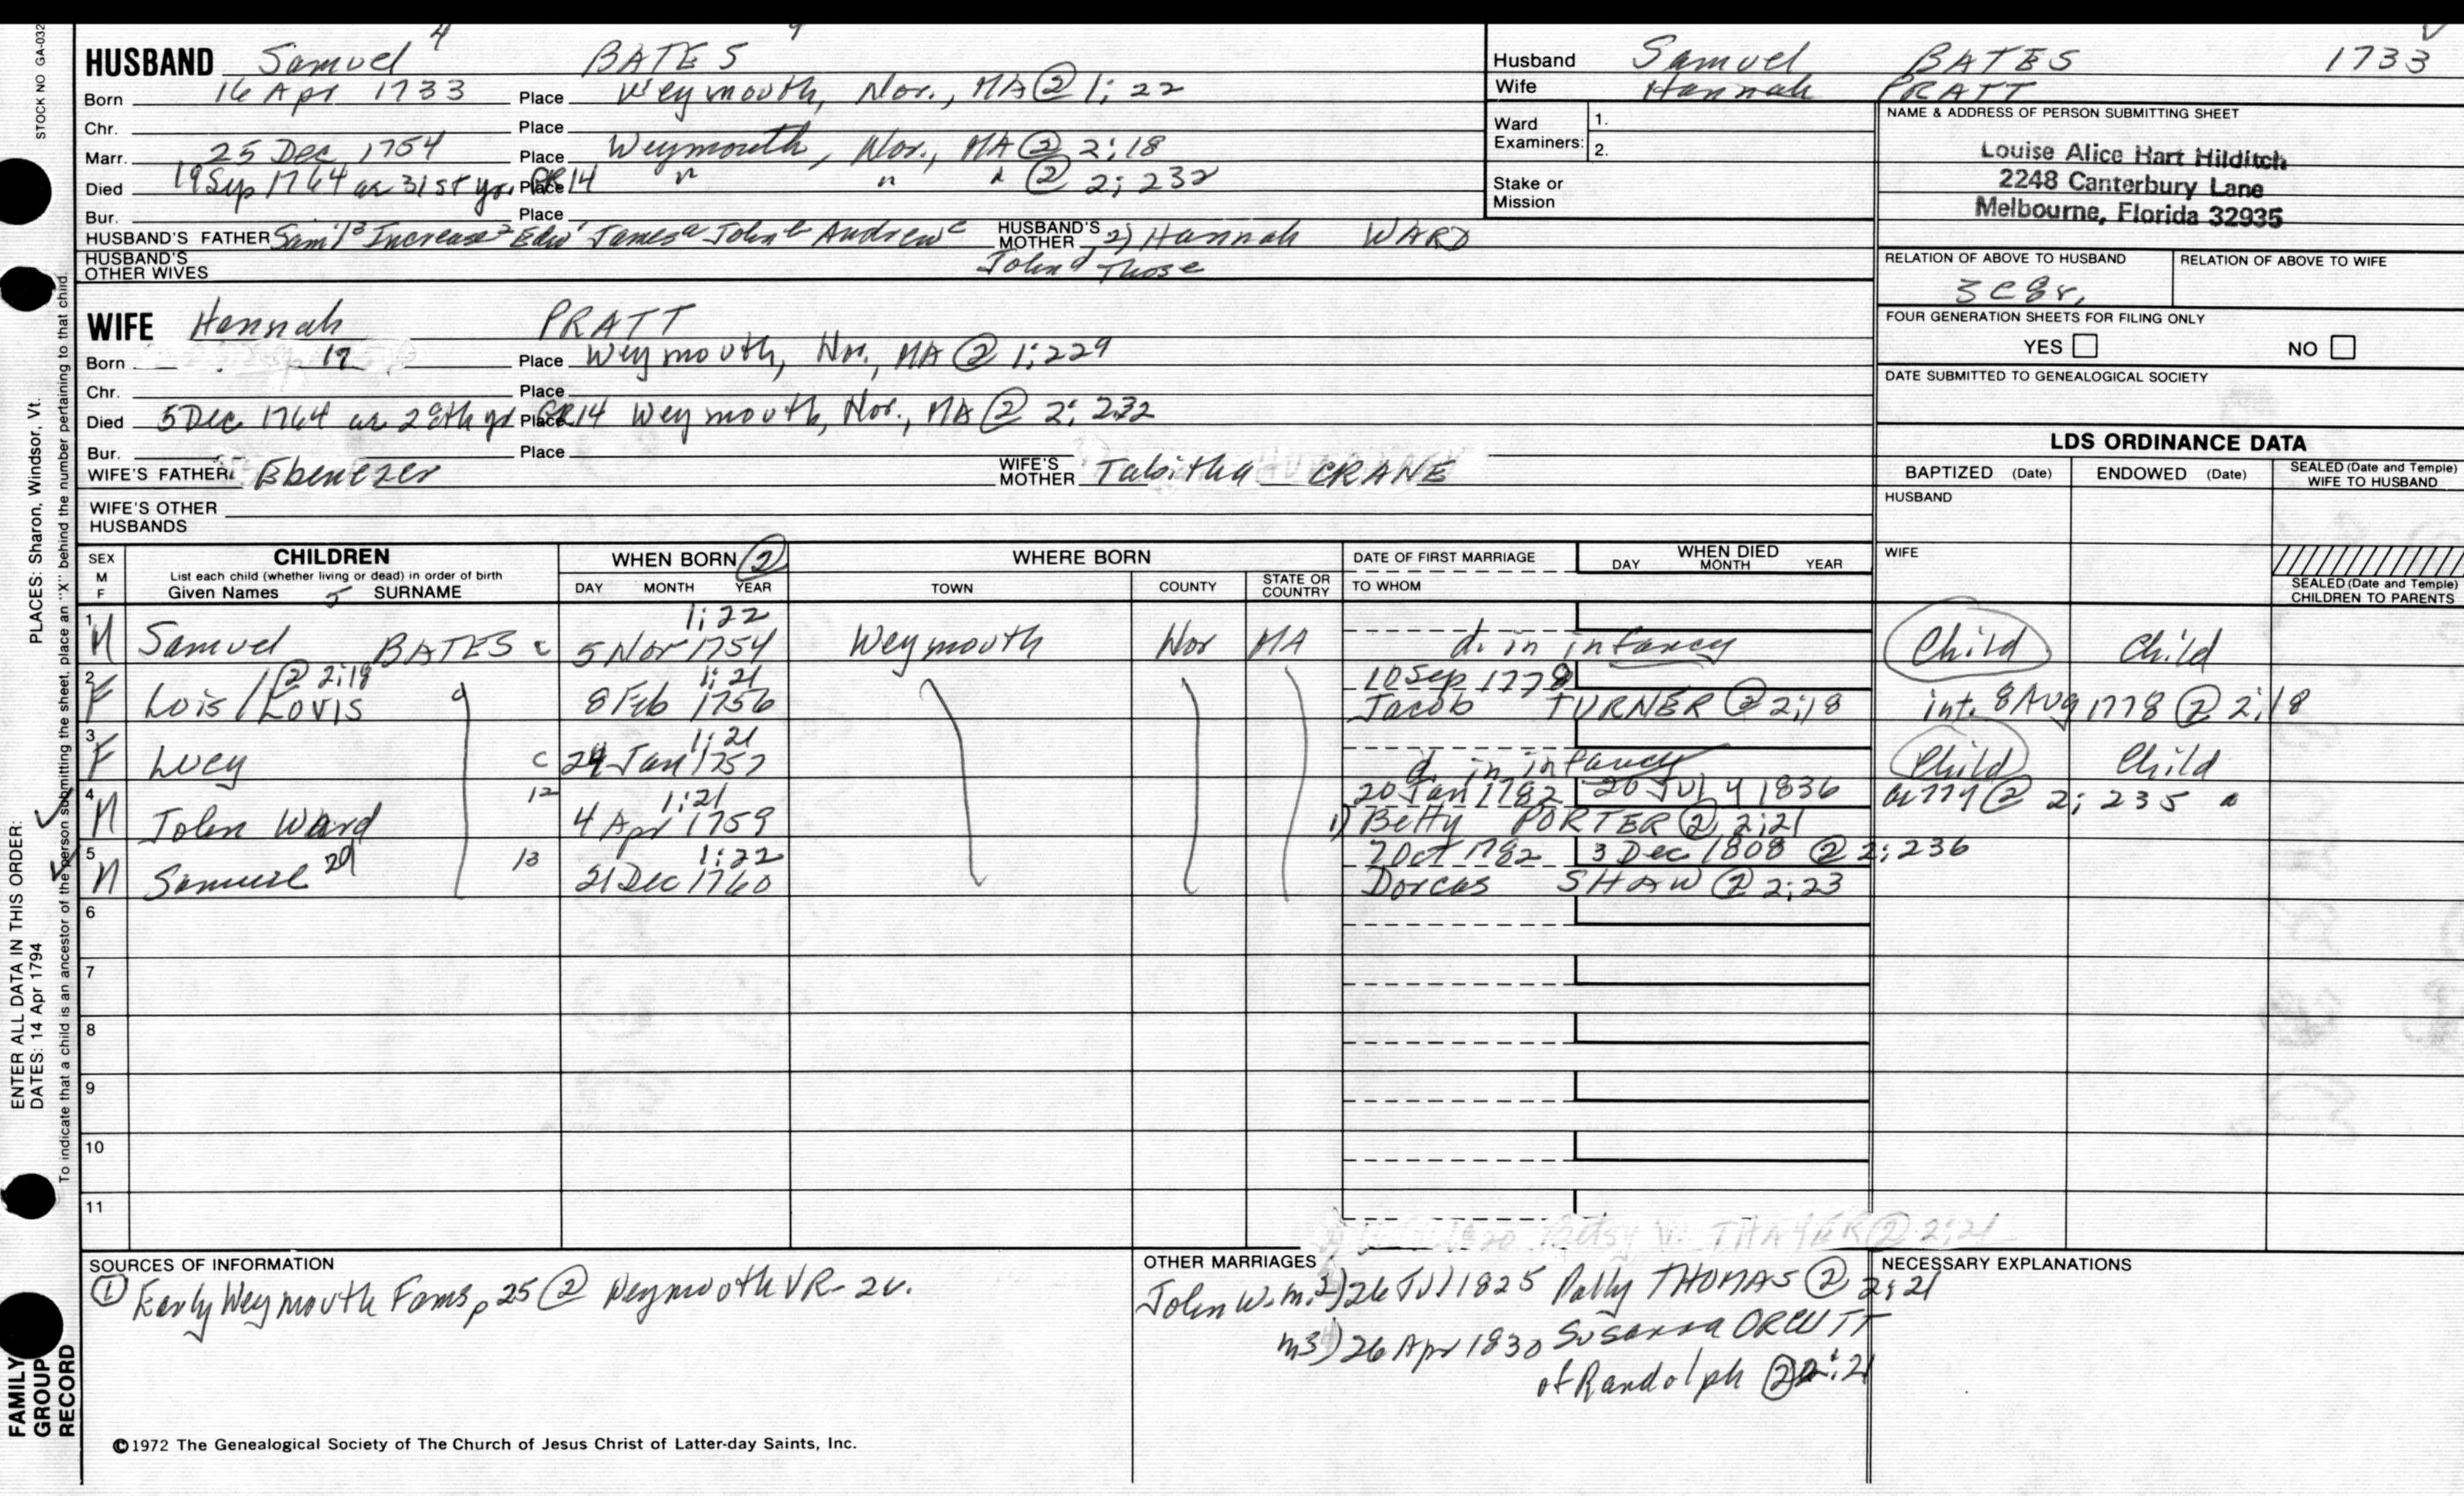 STOCK NO GA-032
HUSBAND Samuel 4 BATES
Born 16 Apr 1733 Place Weymouth, Nor., MA @ 1:22
Chr. Place
Marr. 25 Dec 1754 Place Weymouth, Nor., MA @ 2:18
Died 19 Sep 1764 ae 31st yr. GR14 Place " " " @ 2:232
Bur. Place
HUSBAND'S FATHER Sam'l 3 Increase 2 Edw 1 James a John b Andrew c HUSBAND'S MOTHER 2) Hannah WARD
HUSBAND'S OTHER WIVES John d Thos e
WIFE Hannah PRATT
Born 17 Place Weymouth, Nor., MA @ 1:229
Chr. Place
Died 5 Dec 1764 ae 28th yr GR14 Place Weymouth, Nor., MA @ 2:232
Bur. Place
WIFE'S FATHER Ebenezer WIFE'S MOTHER Tabitha CRANE
WIFE'S OTHER HUSBANDS
Husband Samuel BATES 1733
Wife Hannah PRATT
Ward Examiners: 1.
2.
Stake or Mission
NAME & ADDRESS OF PERSON SUBMITTING SHEET
Louise Alice Hart Hilditch
2248 Canterbury Lane
Melbourne, Florida 32935
RELATION OF ABOVE TO HUSBAND RELATION OF ABOVE TO WIFE
3c8r.
FOUR GENERATION SHEETS FOR FILING ONLY
YES NO
DATE SUBMITTED TO GENEALOGICAL SOCIETY
LDS ORDINANCE DATA
BAPTIZED (Date) ENDOWED (Date) SEALED (Date and Temple) WIFE TO HUSBAND
HUSBAND
WIFE
SEALED (Date and Temple) CHILDREN TO PARENTS
SEX M F CHILDREN WHEN BORN 2 WHERE BORN DATE OF FIRST MARRIAGE WHEN DIED
List each child (whether living or dead) in order of birth
Given Names 5 SURNAME DAY MONTH YEAR TOWN COUNTY STATE OR COUNTRY TO WHOM DAY MONTH YEAR
1:22
1 M Samuel BATES c 5 Nov 1754 Weymouth Nor MA d. in infancy Child Child
@ 2:18 1:21 10 Sep 1778
2 F Lois / Lovis 8 Feb 1756 Jacob TURNER @ 2:18 int. 8 Aug 1778 @ 2:18
1:21
3 F Lucy c 24 Jan 1757 d. in infancy Child Child
12 1:21 20 Jan 1782 20 July 1836 ae 77y @ 2:235
4 M John Ward 4 Apr 1759 1) Betty PORTER @ 2:21
13 1:22 7 Oct 1782 3 Dec 1808 @ 2:236
5 M Samuel 21 Dec 1760 Dorcas SHAW @ 2:23
6
7
8
9
10
11
Betsy W. THAYER @ 2:21
SOURCES OF INFORMATION
① Early Weymouth Fams p 25 @ Weymouth VR - 2v.
OTHER MARRIAGES
John W. m. 2) 26 Jul 1825 Polly THOMAS @ 2:21
m3) 26 Apr 1830 Susanna ORCUTT
of Randolph @ 2:21
NECESSARY EXPLANATIONS
©1972 The Genealogical Society of The Church of Jesus Christ of Latter-day Saints, Inc.
ENTER ALL DATA IN THIS ORDER:
DATES: 14 Apr 1794
PLACES: Sharon, Windsor, Vt.
To indicate that a child is an ancestor of the person submitting the sheet, place an "X" behind the number pertaining to that child.
FAMILY GROUP RECORD